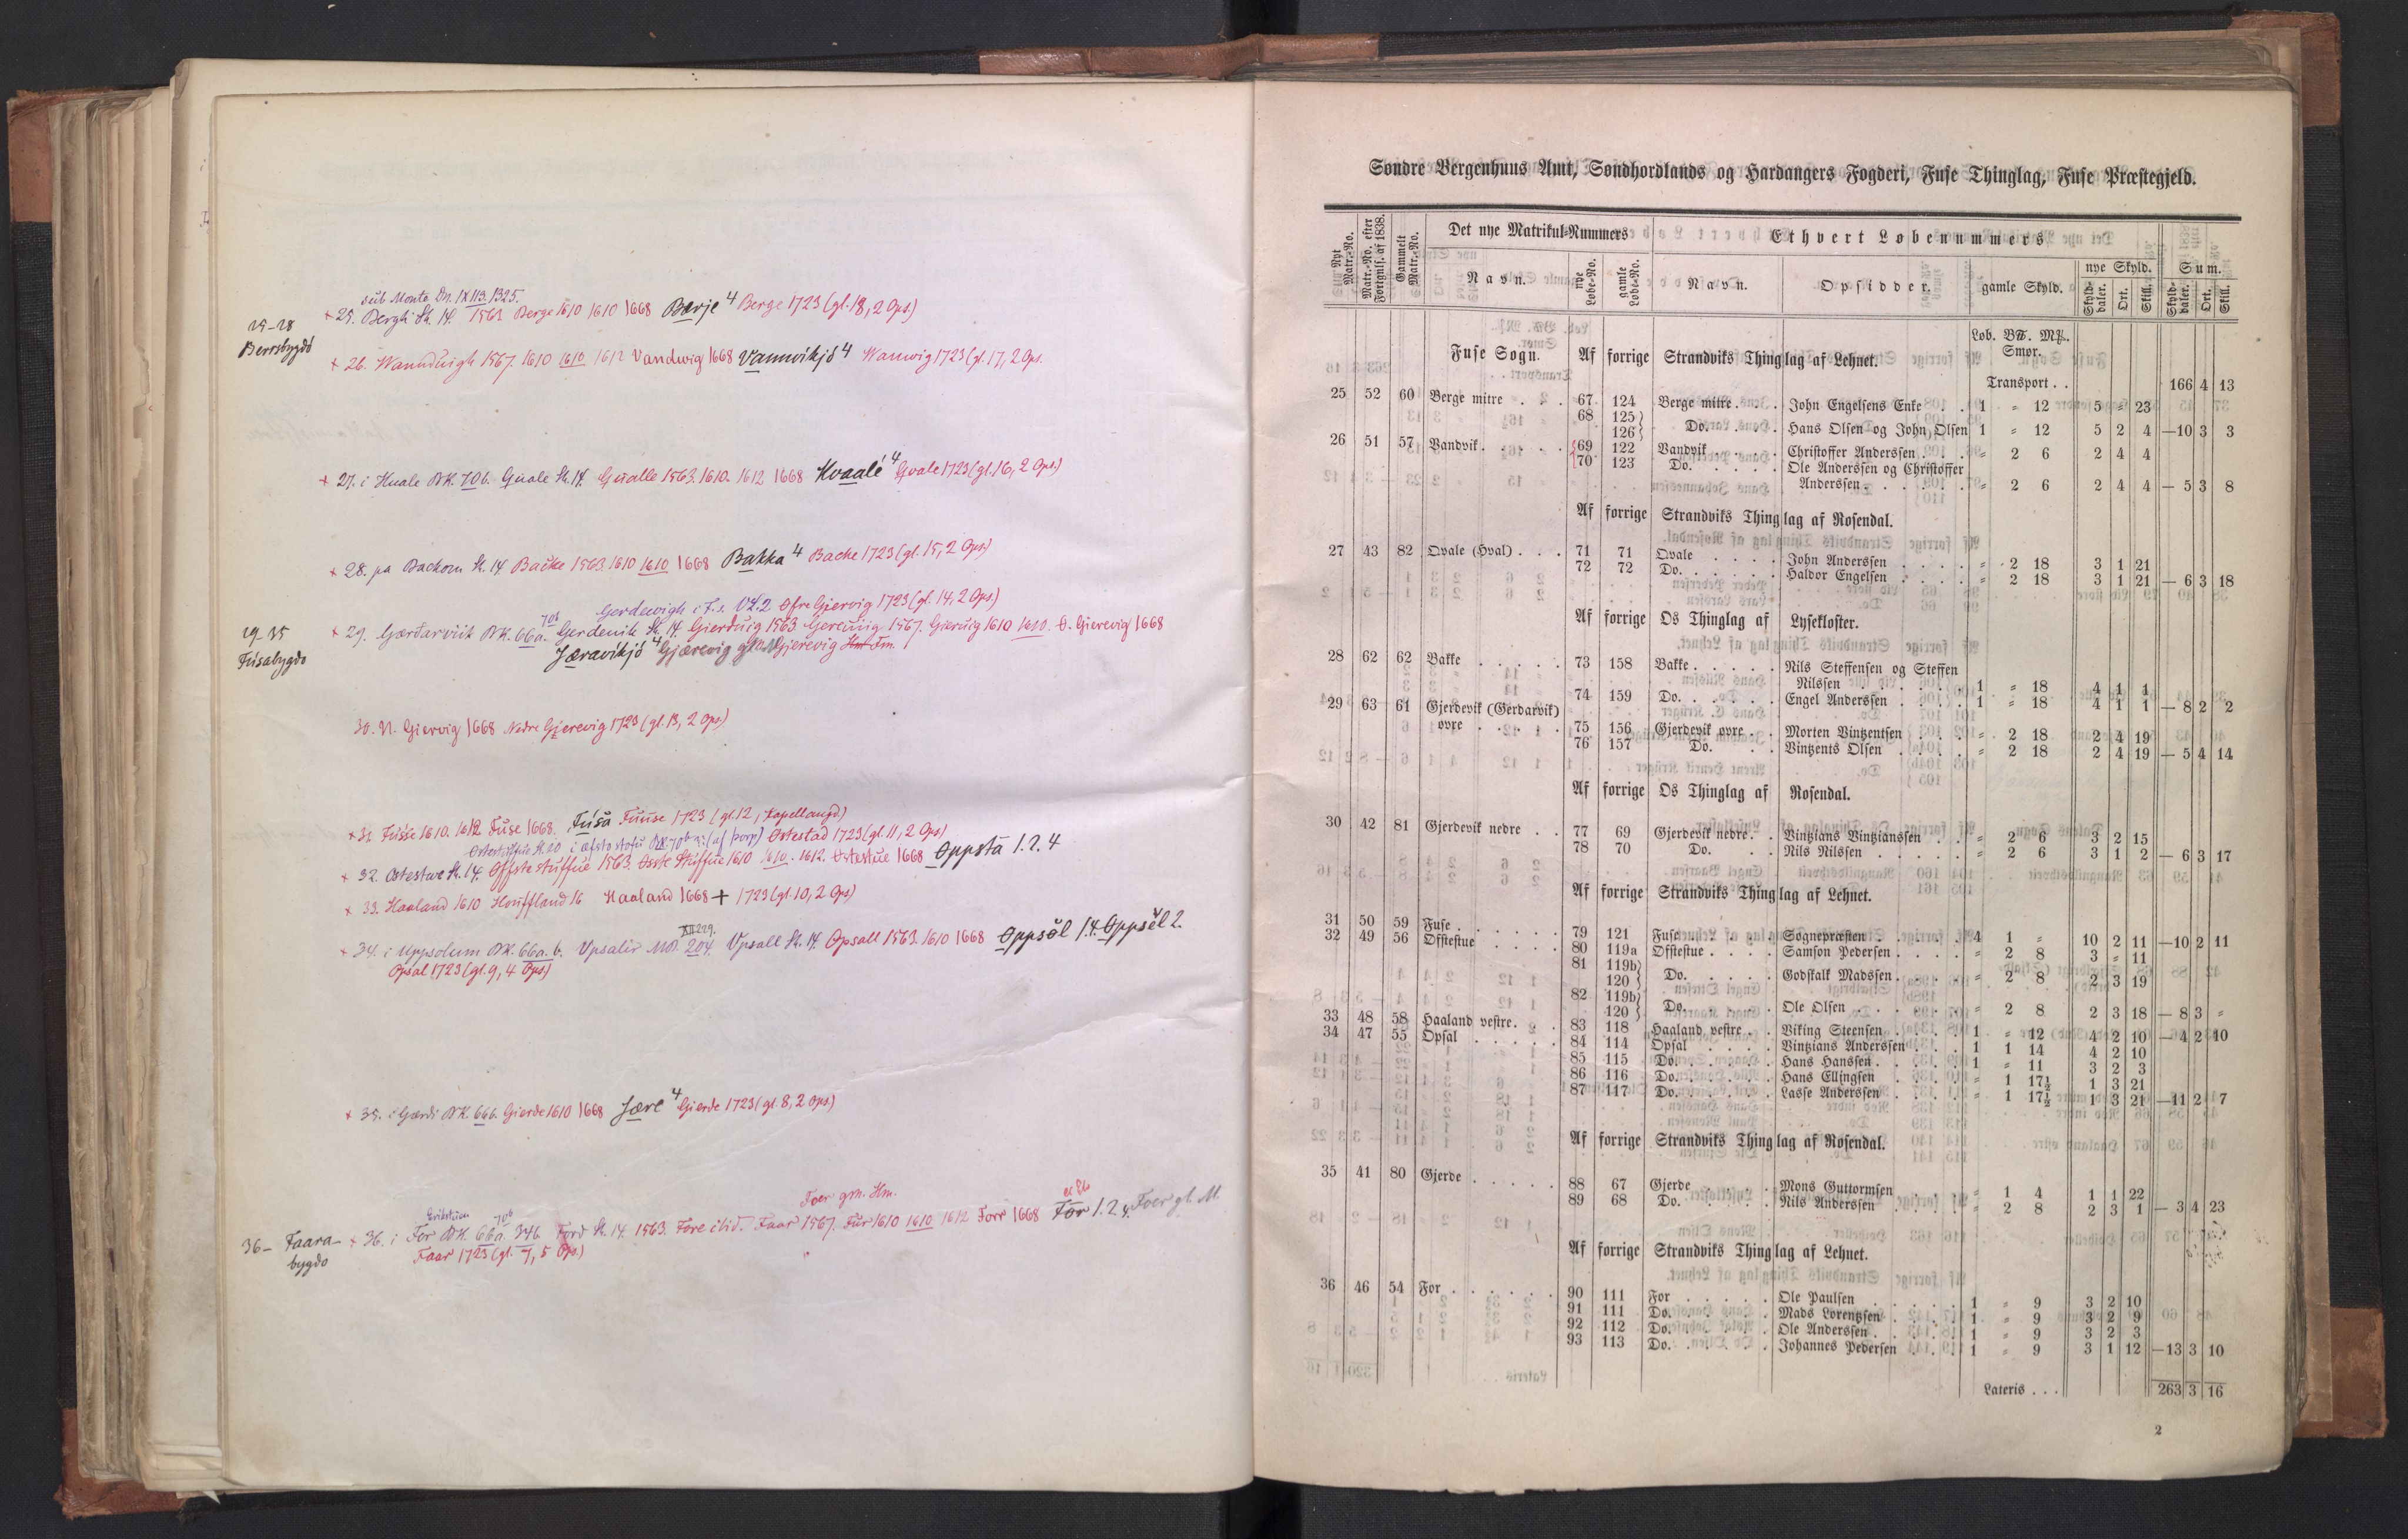 sub Monte Dn. IX 113. 1325.
25-28 × 25. Berghi St. 14. 1563 Berge 1610 1610 1668 Bærje 4 Berge 1723 (gl. 18, 2 Ops.)
Berrsbygdó
× 26. Wannduigh 1567. 1610 1610 1612 Vandwig 1668 Vannvikjó 4 Wanwig 1723 (gl. 17, 2 Ops.
× 27. i Huale BK. 70b. Guale St. 14. Gualle 1563. 1610. 1612 1668 Kvaalé 4 Gvale 1723 (gl. 16, 2 Ops.)
× 28. pa Backom St. 14. Backe 1563. 1610 1610 1668 Bakka 4 Bache 1723 (gl. 15, 2 Ops.)
Gerdewigh i F.s. VL. 2 Øfre Gjervig 1723 (gl. 14, 2 Ops.)
29-35 × 29. Gærdarviik BK. 66a. 70b Gerdeuik St. 14. Gierduig 1563 Gereuiig 1567. Gieruig 1610 1610. Ø. Gierevig 1668
Fúsabygdo Jæravikjó 4 Gjærevig gl. M. Gjerevig Hm. Fm.
30. N. Giervig 1668 Nedre Gjerevig 1723 (gl. 13, 2 Ops.)
× 31. Fusse 1610. 1612 Fuse 1668. Fúsa Fuuse 1723 (gl. 12, Kapellangd)
Østestuffue St. 20 i æfsto stofu BK. 70b (af þorp) Østestad 1723 (gl. 11, 2 Ops)
× 32. Østestwe St. 14. Offste stuffue 1563. Øsste Stuffue 1610 1610. 1612. Østestue 1668 Oppsta 1. 2. 4
× 33. Haaland 1610 Houffland 16 Haaland 1668 + 1723 (gl. 10, 2 Ops)
XII 229.
× 34. i Uppsolum BK. 66a. b. Vpsalir MD. 204. Vpsall St. 14. Opsall 1563. 1610 1668 Oppsǒl 1. 4. Oppsěl 2.
Opsal 1723 (gl. 9, 4 Ops.)
× 35. i Gærdi BK. 66b. Gierde 1610 1668 Jære 4 Gierde 1723 (gl. 8, 2 Ops.)
Foer grn. Hm.
36- Faara- × 36. i For BK. 66a. 70b 34b. Ford St. 14. 1563. Fore ibid. Faar 1567. Fur 1610 1610 1612 Forr 1668 For 1. 2. 4. Foer gl. M.
bygdo Faar 1723 (gl. 7, 5 Ops.)
Søndre Bergenhuus Amt, Søndhordlands og Hardangers Fogderi, Fuse Thinglag, Fuse Præstegjeld.
Nyt Matr.-No. Matr.-No. efter Fortegnels. af 1838. Gammelt Matr.-No. Det nye Matrikul-Nummers Ethvert Løbenummers
Navn. nye Løbe-No. gamle Løbe-No. Navn. Opsidder. gamle Skyld. nye Skyld. Sum.
Skyld-daler. Ort. Skill. Skyld-daler. Ort. Skill.
Løb. B℔. M℔.
Fuse Sogn. Af forrige Strandviks Thinglag af Lehnet. Smør.
Transport . . 166 4 13
25 52 60 Berge mitre . . . 67 124 Berge mitre . . . John Engelsens Enke . . 1 = 12 5 = 23
68 125} 126} Do. . . . . Hans Olsen og John Olsen 1 = 12 5 2 4 —10 3 3
26 51 57 Vandvik . . . . 69 122 Vandvik . . . . Christoffer Anderssen . . . = 2 6 2 4 4
70 123 Do. . . . . Ole Anderssen og Christoffer
Anderssen . . . . . = 2 6 2 4 4 — 5 3 8
Af forrige Strandviks Thinglag af Rosendal.
27 43 82 Qvale (Hval) . . . 71 71 Qvale . . . . John Anderssen . . . . = 2 18 3 1 21
72 72 Do. . . . . Haldor Engelsen . . . . = 2 18 3 1 21 — 6 3 18
Af forrige Os Thinglag af Lysekloster.
28 62 62 Bakke . . . . . 73 158 Bakke . . . . . Nils Steffensen og Steffen
Nilssen . . . . . 1 = 18 4 1 1
74 159 Do. . . . . Engel Anderssen . . . . 1 = 18 4 1 1 — 8 2 2
29 63 61 Gjerdevik (Gerdarvik)
øvre . . . . . 75 156 Gjerdevik øvre . . Morten Vintzentsen . . . = 2 18 2 4 19
76 157 Do. . . Vintzents Olsen . . . . = 2 18 2 4 19 — 5 4 14
Af forrige Os Thinglag af Rosendal.
30 42 81 Gjerdevik nedre . . 77 69 Gjerdevik nedre . . Vintzians Vintzianssen . . = 2 6 3 2 15
78 70 Do. . . Nils Nilssen . . . . . = 2 6 3 1 2 — 6 3 17
Af forrige Strandviks Thinglag af Lehnet.
31 50 59 Fuse . . . . . . 79 121 Fuse . . . . . Sognepræsten . . . . . 4 1 = 10 2 11 —10 2 11
32 49 56 Øfstestue . . . . 80 119a Øfstestue . . . . Samson Pedersen . . . . = 2 8 3 = 11
81 119b} 120} Do. . . . . Godskalk Madssen . . . . = 2 8 2 3 19
82 119b} 120} Do. . . . . Ole Olsen . . . . . = 2 8 2 3 18 — 8 3 =
33 48 58 Haaland vestre . . 83 118 Haaland vestre . . Viking Steensen . . . . 1 = 12 4 2 10 — 4 2 10
34 47 55 Opsal . . . . . 84 114 Opsal . . . . . Vintzians Anderssen . . . 1 1 14 4 2 10
85 115 Do. . . . . Hans Hanssen . . . . . 1 = 11 3 2 3
86 116 Do. . . . . Hans Ellingsen . . . . = 1 17½ 1 3 21
87 117 Do. . . . . Lasse Anderssen . . . . = 1 17½ 1 3 21 —11 2 7
Af forrige Strandviks Thinglag af Rosendal.
35 41 80 Gjerde . . . . . 88 67 Gjerde . . . . Mons Guttormsen . . . . = 1 4 1 1 22
89 68 Do. . . . . Nils Anderssen . . . . = 2 8 2 3 1 — 3 4 23
Af forrige Strandviks Thinglag af Lehnet.
36 46 54 For . . . . . . 90 111 For . . . . . Ole Paulsen . . . . . 1 = 9 3 2 10
91 111 Do. . . . . Mads Lorentzsen . . . . 1 = 9 3 2 9
92 112 Do. . . . . Ole Anderssen . . . . . 1 = 9 3 2 3
93 113 Do. . . . . Johannes Pedersen . . . 1 = 9 3 1 12 —13 3 10
Lateris . . . 263 3 16
2